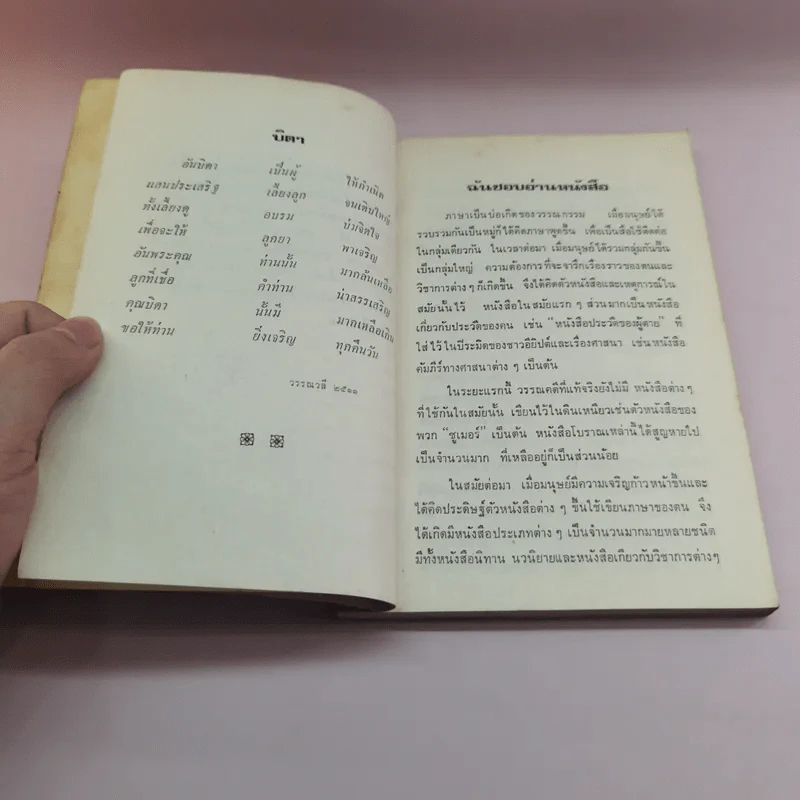 บิดา
อันบิดา เป็นผู้ ให้กำเนิด
แสนประเสริฐ เลี้ยงลูก จนเติบใหญ่
ทั้งเลี้ยงดู อบรม บ่มจิตใจ
เพื่อจะให้ ลูกยา พาเจริญ
อันพระคุณ ท่านนั้น มากล้นเหลือ
ลูกที่เชื่อ คำท่าน น่าสรรเสริญ
คุณบิดา นั้นมี มากเหลือเกิน
ขอให้ท่าน ยิ่งเจริญ ทุกคืนวัน
วรรณวลี ๒๕๑๑
ฉันชอบอ่านหนังสือ
ภาษาเป็นบ่อเกิดของวรรณกรรม เมื่อมนุษย์ได้
รวบรวมกันเป็นหมู่ก็ได้คิดภาษาพูดขึ้น เพื่อเป็นสื่อใช้ติดต่อ
ในกลุ่มเดียวกัน ในเวลาต่อมา เมื่อมนุษย์ได้รวมกลุ่มกันขึ้น
เป็นกลุ่มใหญ่ ความต้องการที่จะจารึกเรื่องราวของตนและ
วิชาการต่าง ๆ ก็เกิดขึ้น จึงได้คิดตัวหนังสือและเหตุการณ์ใน
สมัยนั้นไว้ หนังสือในสมัยแรก ๆ ส่วนมากเป็นหนังสือ
เกี่ยวกับประวัติของคน เช่น "หนังสือประวัติของผู้ตาย" ที่
ใส่ไว้ในปิระมิดของชาวอียิปต์และเรื่องศาสนา เช่นหนังสือ
คัมภีร์ทางศาสนาต่าง ๆ เป็นต้น
ในระยะแรกนี้ วรรณคดีที่แท้จริงยังไม่มี หนังสือต่าง ๆ
ที่ใช้กันในสมัยนั้น เขียนไว้ในดินเหนียวเช่นตัวหนังสือของ
พวก "ซูเมอร์" เป็นต้น หนังสือโบราณเหล่านี้ได้สูญหายไป
เป็นจำนวนมาก ที่เหลืออยู่ก็เป็นส่วนน้อย
ในสมัยต่อมา เมื่อมนุษย์มีความเจริญก้าวหน้าขึ้นและ
ได้คิดประดิษฐ์ตัวหนังสือต่าง ๆ ขึ้นใช้เขียนภาษาของตน จึง
ได้เกิดมีหนังสือประเภทต่าง ๆ เป็นจำนวนมากมายหลายชนิด
มีทั้งหนังสือนิทาน นวนิยายและหนังสือเกี่ยวกับวิชาการต่างๆ